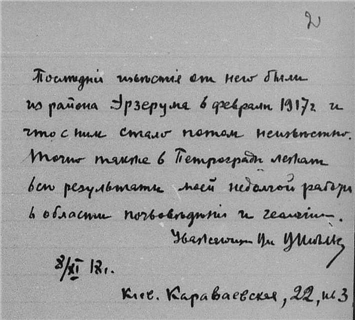 2
Последнія извѣстія от него были
из района Эрзерума в февралѣ 1917 г и
что с ним стало потом неизвѣстно.
Точно также в Петроградѣ лежат
всѣ результаты моей недолгой работы
в области почвовѣдѣнія и геологіи.
Уважающій Вас
8/XI 18 г.
Кіев. Караваевская, 22, кв 3